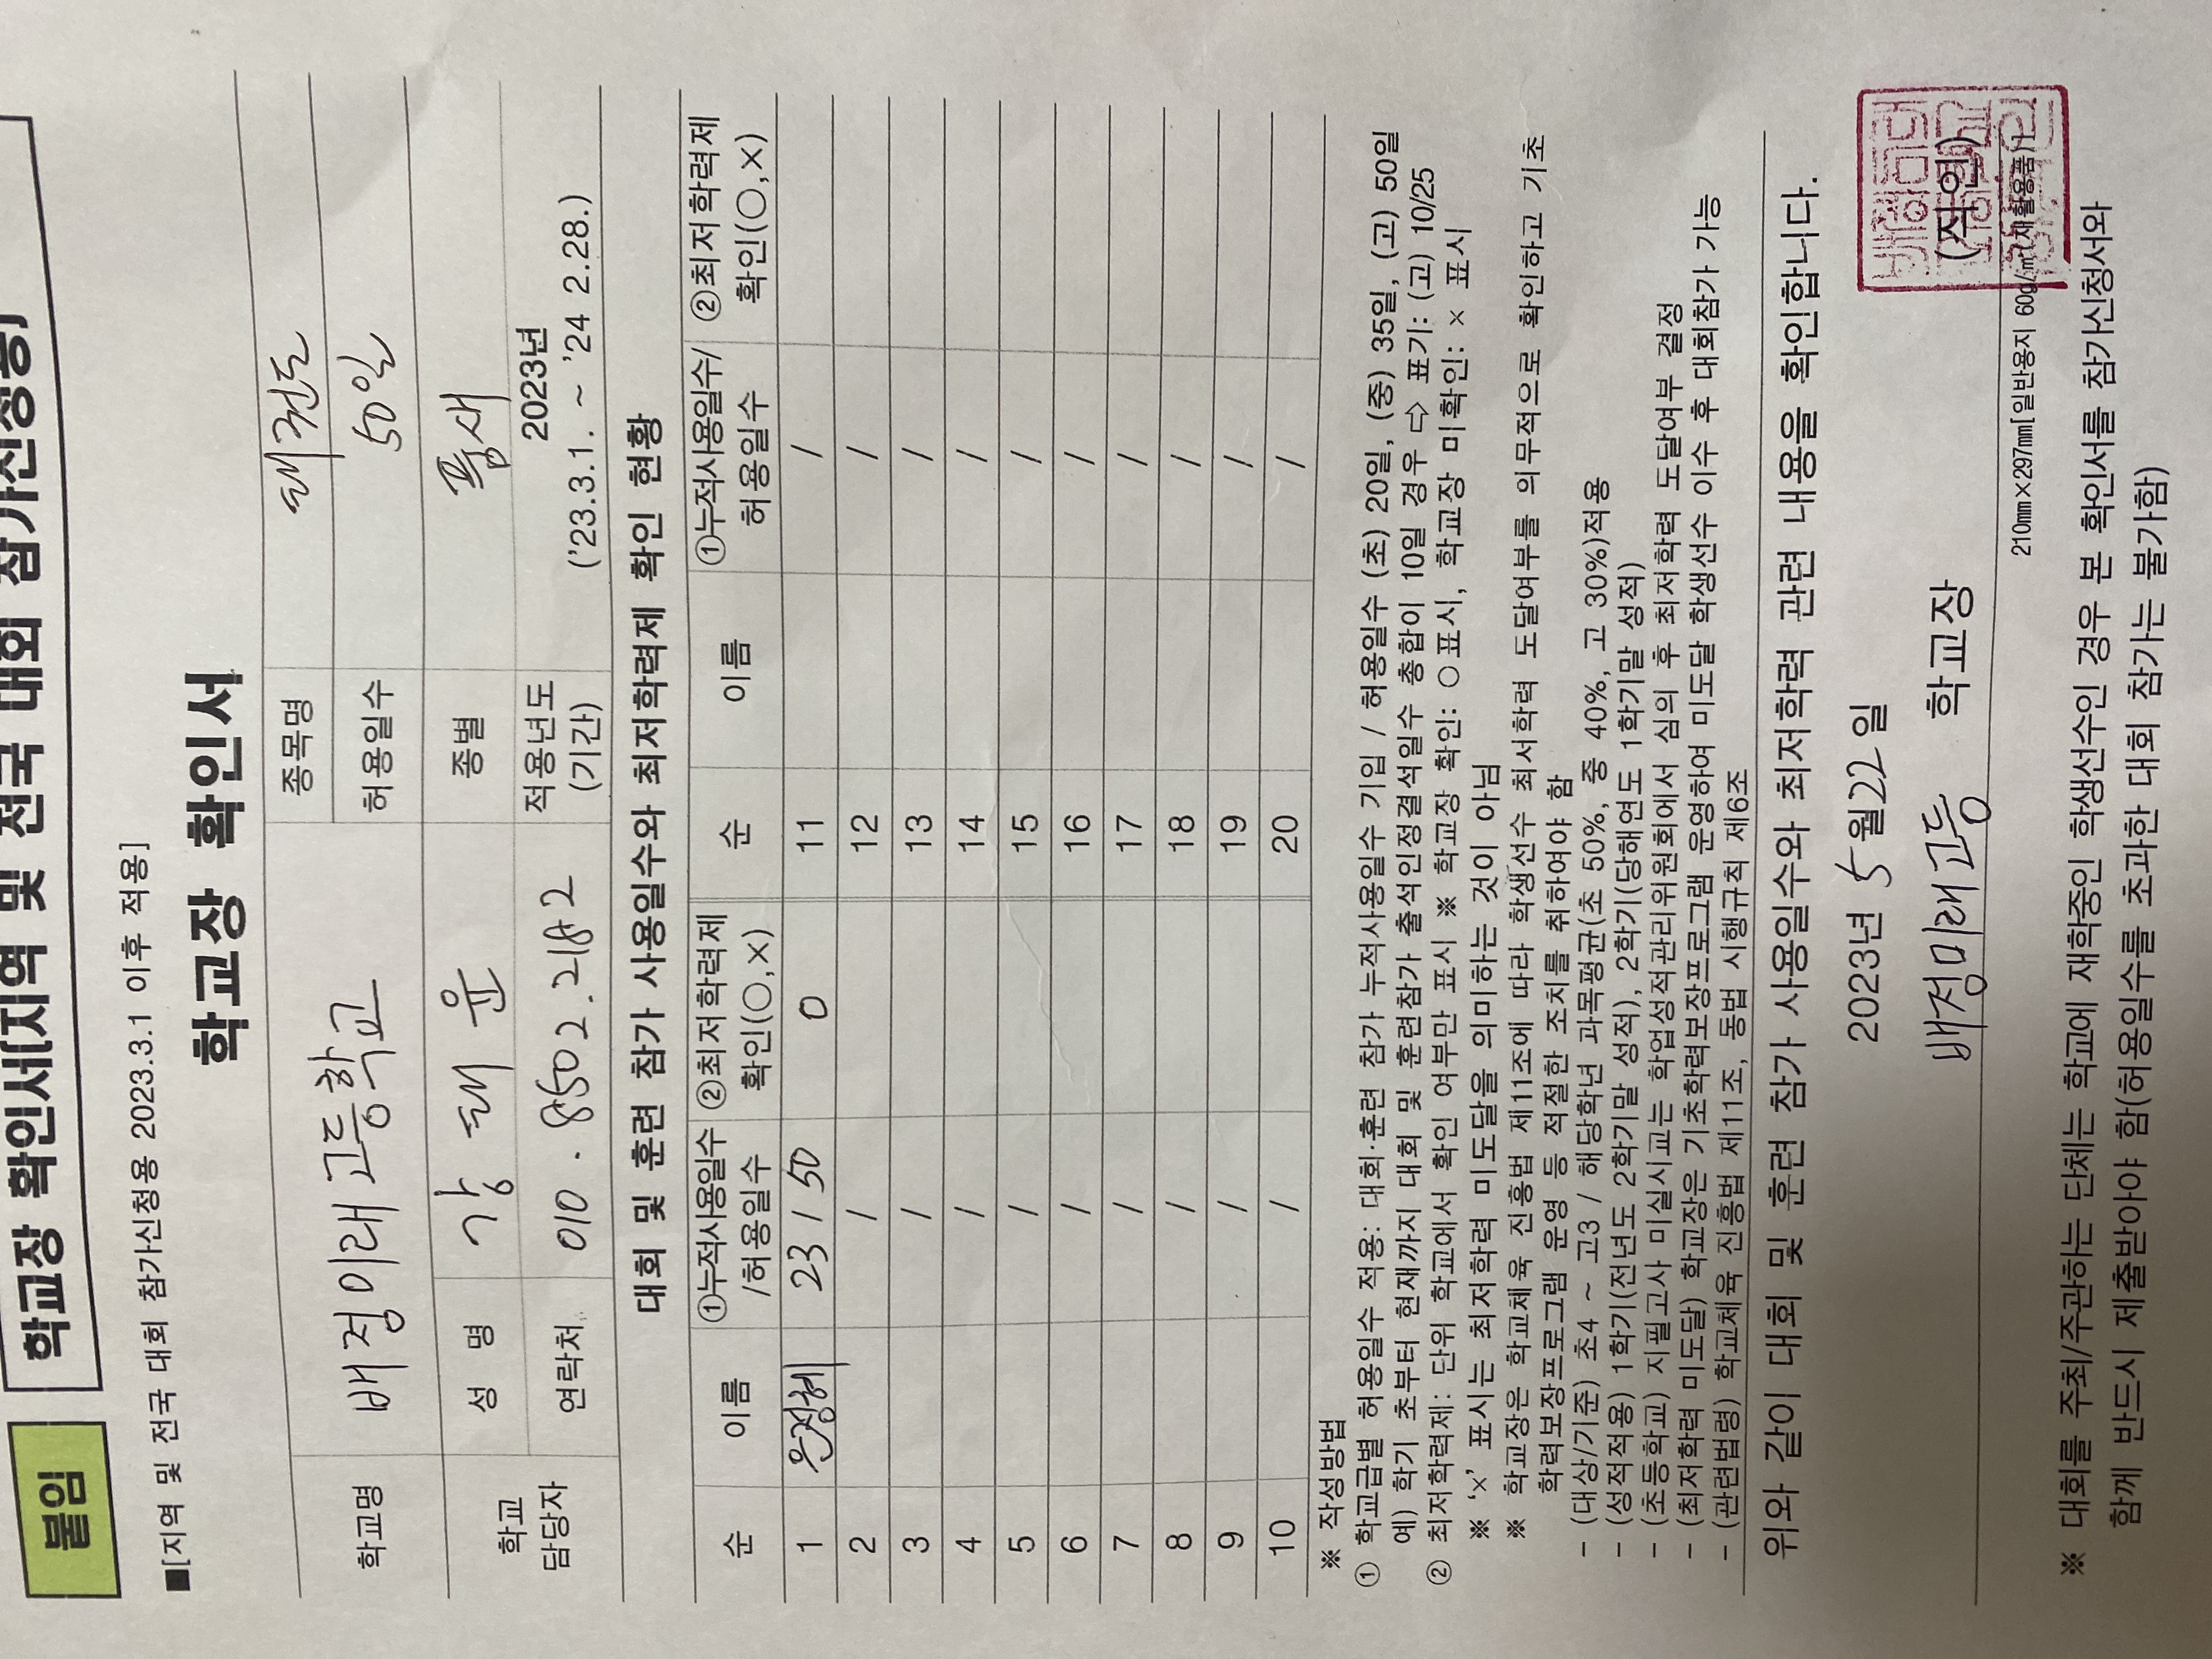 붙임 학교장 확인서(지역 및 전국 대회 참가신청용)
■[지역 및 전국 대회 참가신청용 2023.3.1 이후 적용]
학교장 확인서
학교명 배정미래고등학교 종목명 태권도
허용일수 50일
학교 담당자 성 명 강 태 윤 종별 품새
연락처 010 . 8502 . 2182 적용년도 (기간) 2023년 ('23.3.1. ~ '24 2.28.)
대회 및 훈련 참가 사용일수와 최저학력제 확인 현황
순 이름 ①누적사용일수 /허용일수 ②최저학력제 확인(○,×) 순 이름 ①누적사용일수/ 허용일수 ②최저학력제 확인(○,×)
1 윤정혜 23 / 50 0 11 /
2 / 12 /
3 / 13 /
4 / 14 /
5 / 15 /
6 / 16 /
7 / 17 /
8 / 18 /
9 / 19 /
10 / 20 /
※ 작성방법
① 학교급별 허용일수 적용: 대회·훈련 참가 누적사용일수 기입 / 허용일수 (초) 20일, (중) 35일, (고) 50일
예) 학기 초부터 현재까지 대회 및 훈련참가 출석인정결석일수 총합이 10일 경우 ⇨ 표기: (고) 10/25
② 최저학력제: 단위 학교에서 확인 여부만 표시 ※ 학교장 확인: ○표시, 학교장 미확인: × 표시
※ '×' 표시는 최저학력 미도달을 의미하는 것이 아님
※ 학교장은 학교체육 진흥법 제11조에 따라 학생선수 최서학력 도달여부를 의무적으로 확인하고 기초
학력보장프로그램 운영 등 적절한 조치를 취하여야 함
- (대상/기준) 초4 ~ 고3 / 해당학년 과목평균(초 50%, 중 40%, 고 30%)적용
- (성적적용) 1학기(전년도 2학기말 성적), 2학기(당해연도 1학기말 성적)
- (초등학교) 지필고사 미실시교는 학업성적관리위원회에서 심의 후 최저학력 도달여부 결정
- (최저학력 미도달) 학교장은 기초학력보장프로그램 운영하여 미도달 학생선수 이수 후 대회참가 가능
- (관련법령) 학교체육 진흥법 제11조, 동법 시행규칙 제6조
위와 같이 대회 및 훈련 참가 사용일수와 최저학력 관련 내용을 확인합니다.
2023년 5월22일
배정미래고등 학교장 (직인)
210mm×297mm[일반용지 60g/㎡(재활용품)]
※ 대회를 주최/주관하는 단체는 학교에 재학중인 학생선수인 경우 본 확인서를 참가신청서와
함께 반드시 제출받아야 함(허용일수를 초과한 대회 참가는 불가함)